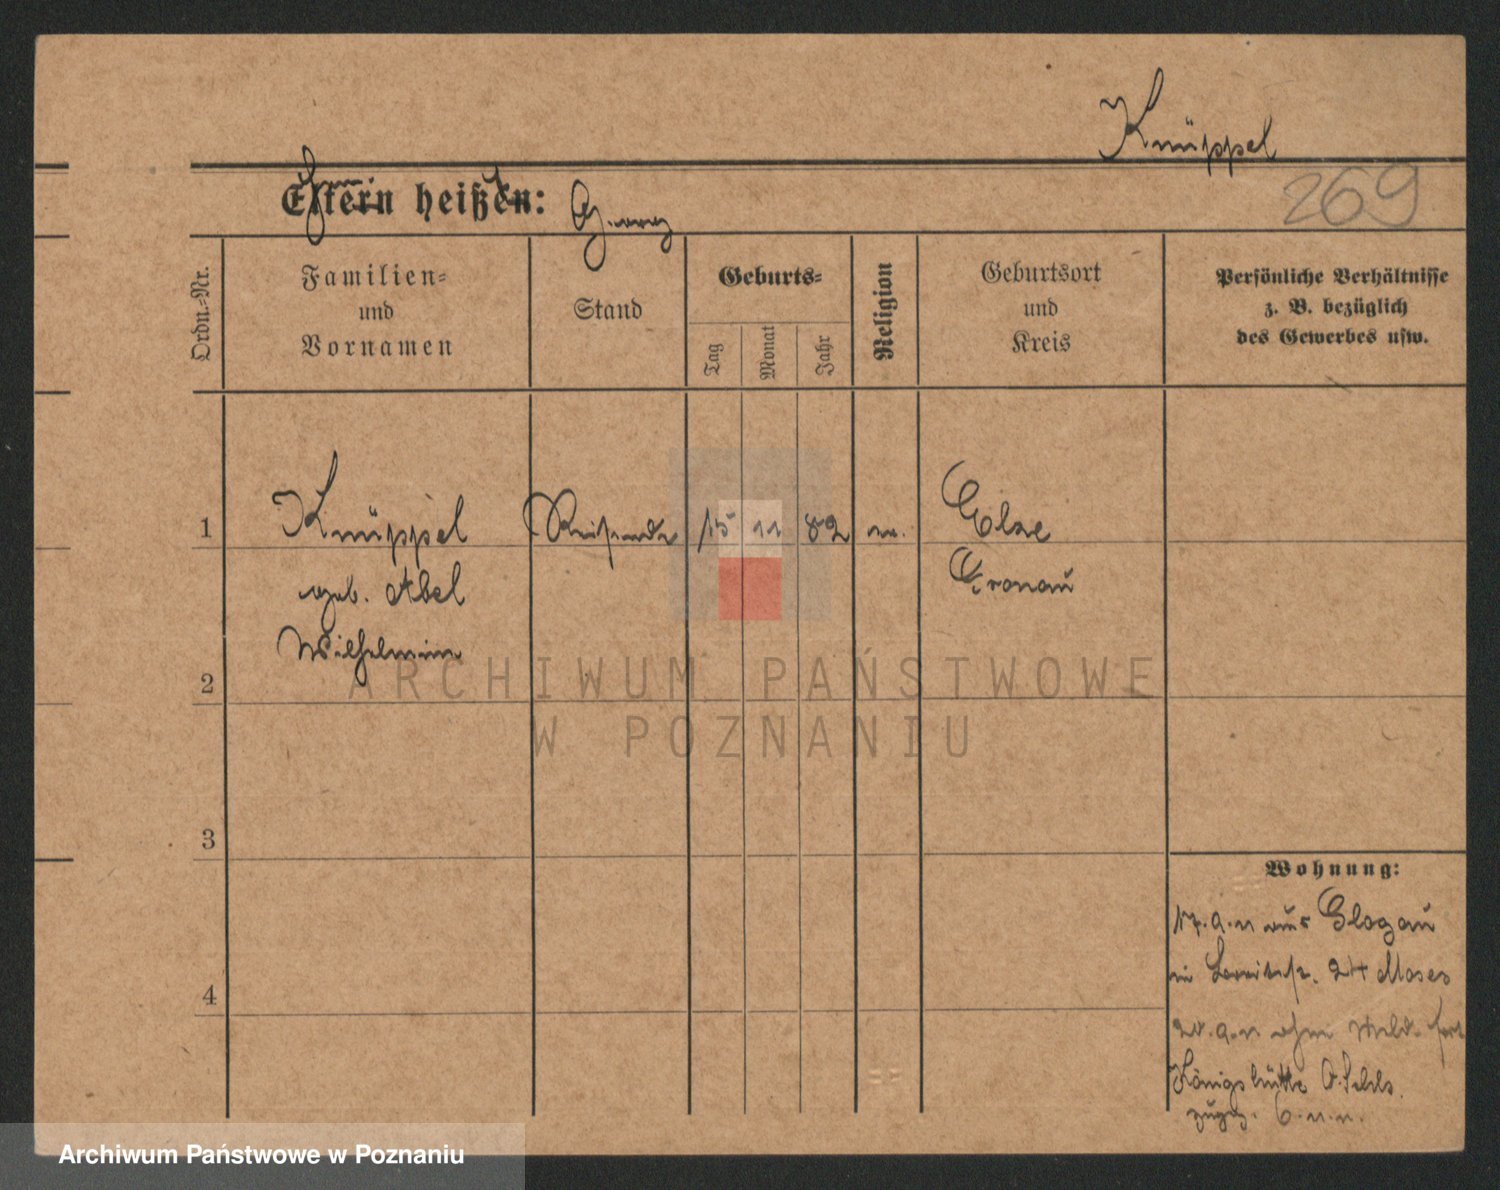 Knüppel
269
Eltern heißen: Georg
Ordn.-Nr.
Familien-
und
Vornamen
Stand
Geburts-
Tag
Monat
Jahr
Religion
Geburtsort
und
Kreis
Persönliche Verhältnisse
z. B. bezüglich
des Gewerbes usw.
1
Knüppel
Reisende
15
11
82
ev.
Elze
geb. Abel
Gronau
Wilhelmine
2
3
4
Wohnung:
17.9.11 aus Glogau
24 Moses
9.11 ohne Meld. fort
Königshütte O. Schls.
zugez.
ARCHIWUM PAŃSTWOWE
W POZNANIU
Archiwum Państwowe w Poznaniu